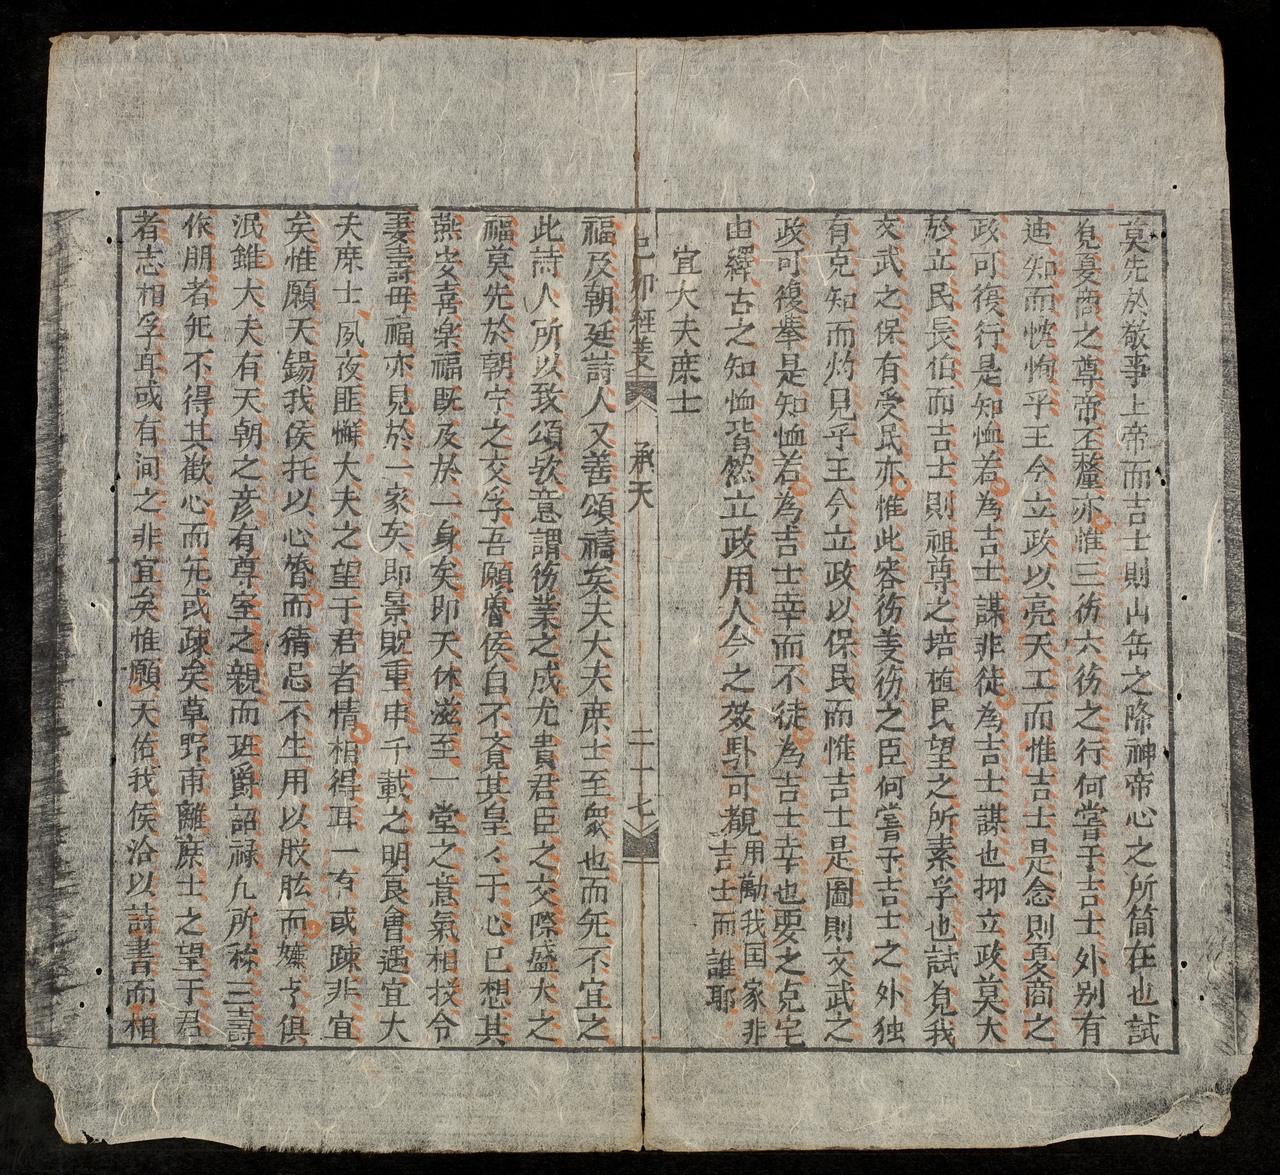 莫先於敬事上帝而吉士則山岳之降神帝心之所简在也試
覓夏商之尊帝丕釐亦惟三㑹六㑹之行何嘗于吉士外别有
迪知而忱恂乎王今立政以亮天工而惟吉士是念則夏商之
政可復行是知恤若為吉士謀非徒為吉士謀也抑立政莫大
於立民長伯而吉士則祖尊之培植民望之所素孚也試覓我
文武之保有受民亦惟此容㑹羑㑹之臣何嘗予吉士之外独
有克知而灼見乎王今立政以保民而惟吉士是圖則文武之
政可復舉是知恤若為吉士幸而不徒為吉士幸也要之克宅
由繹古之知恤皆然立政用人今之效卧可觀用勱我国家非
吉士而誰耶
宜大夫庶士
己卯經義 承天 二十七
福及朝廷詩人又善頌禱矣夫大夫庶士至衆也而旡不宜之
此詩人所以致頌欤意謂㑹業之成尤貴君臣之交際盛大之
福莫先於朝宁之交孚吾願魯侯自不資其皇々于心已想其
燕安喜楽福既及於一身矣即天休滋至一堂之意氣相投令
妻壽母福亦見於一家矣即景貺重申千載之明良會遇宜大
夫庶士夙夜匪懈大夫之望于君者情相得耳一有或踈非宜
矣惟願天錫我侯托以心膂而猜忌不生用以股肱而嫌𠂢俱
泯雖大夫有天朝之彦有尊室之親而班爵詔禄凡所稱三壽
作朋者旡不得其歡心而旡或踈矣草野甫離庶士之望于君
者志相孚耳或有间之非宜矣惟願天佑我侯洽以詩書而相